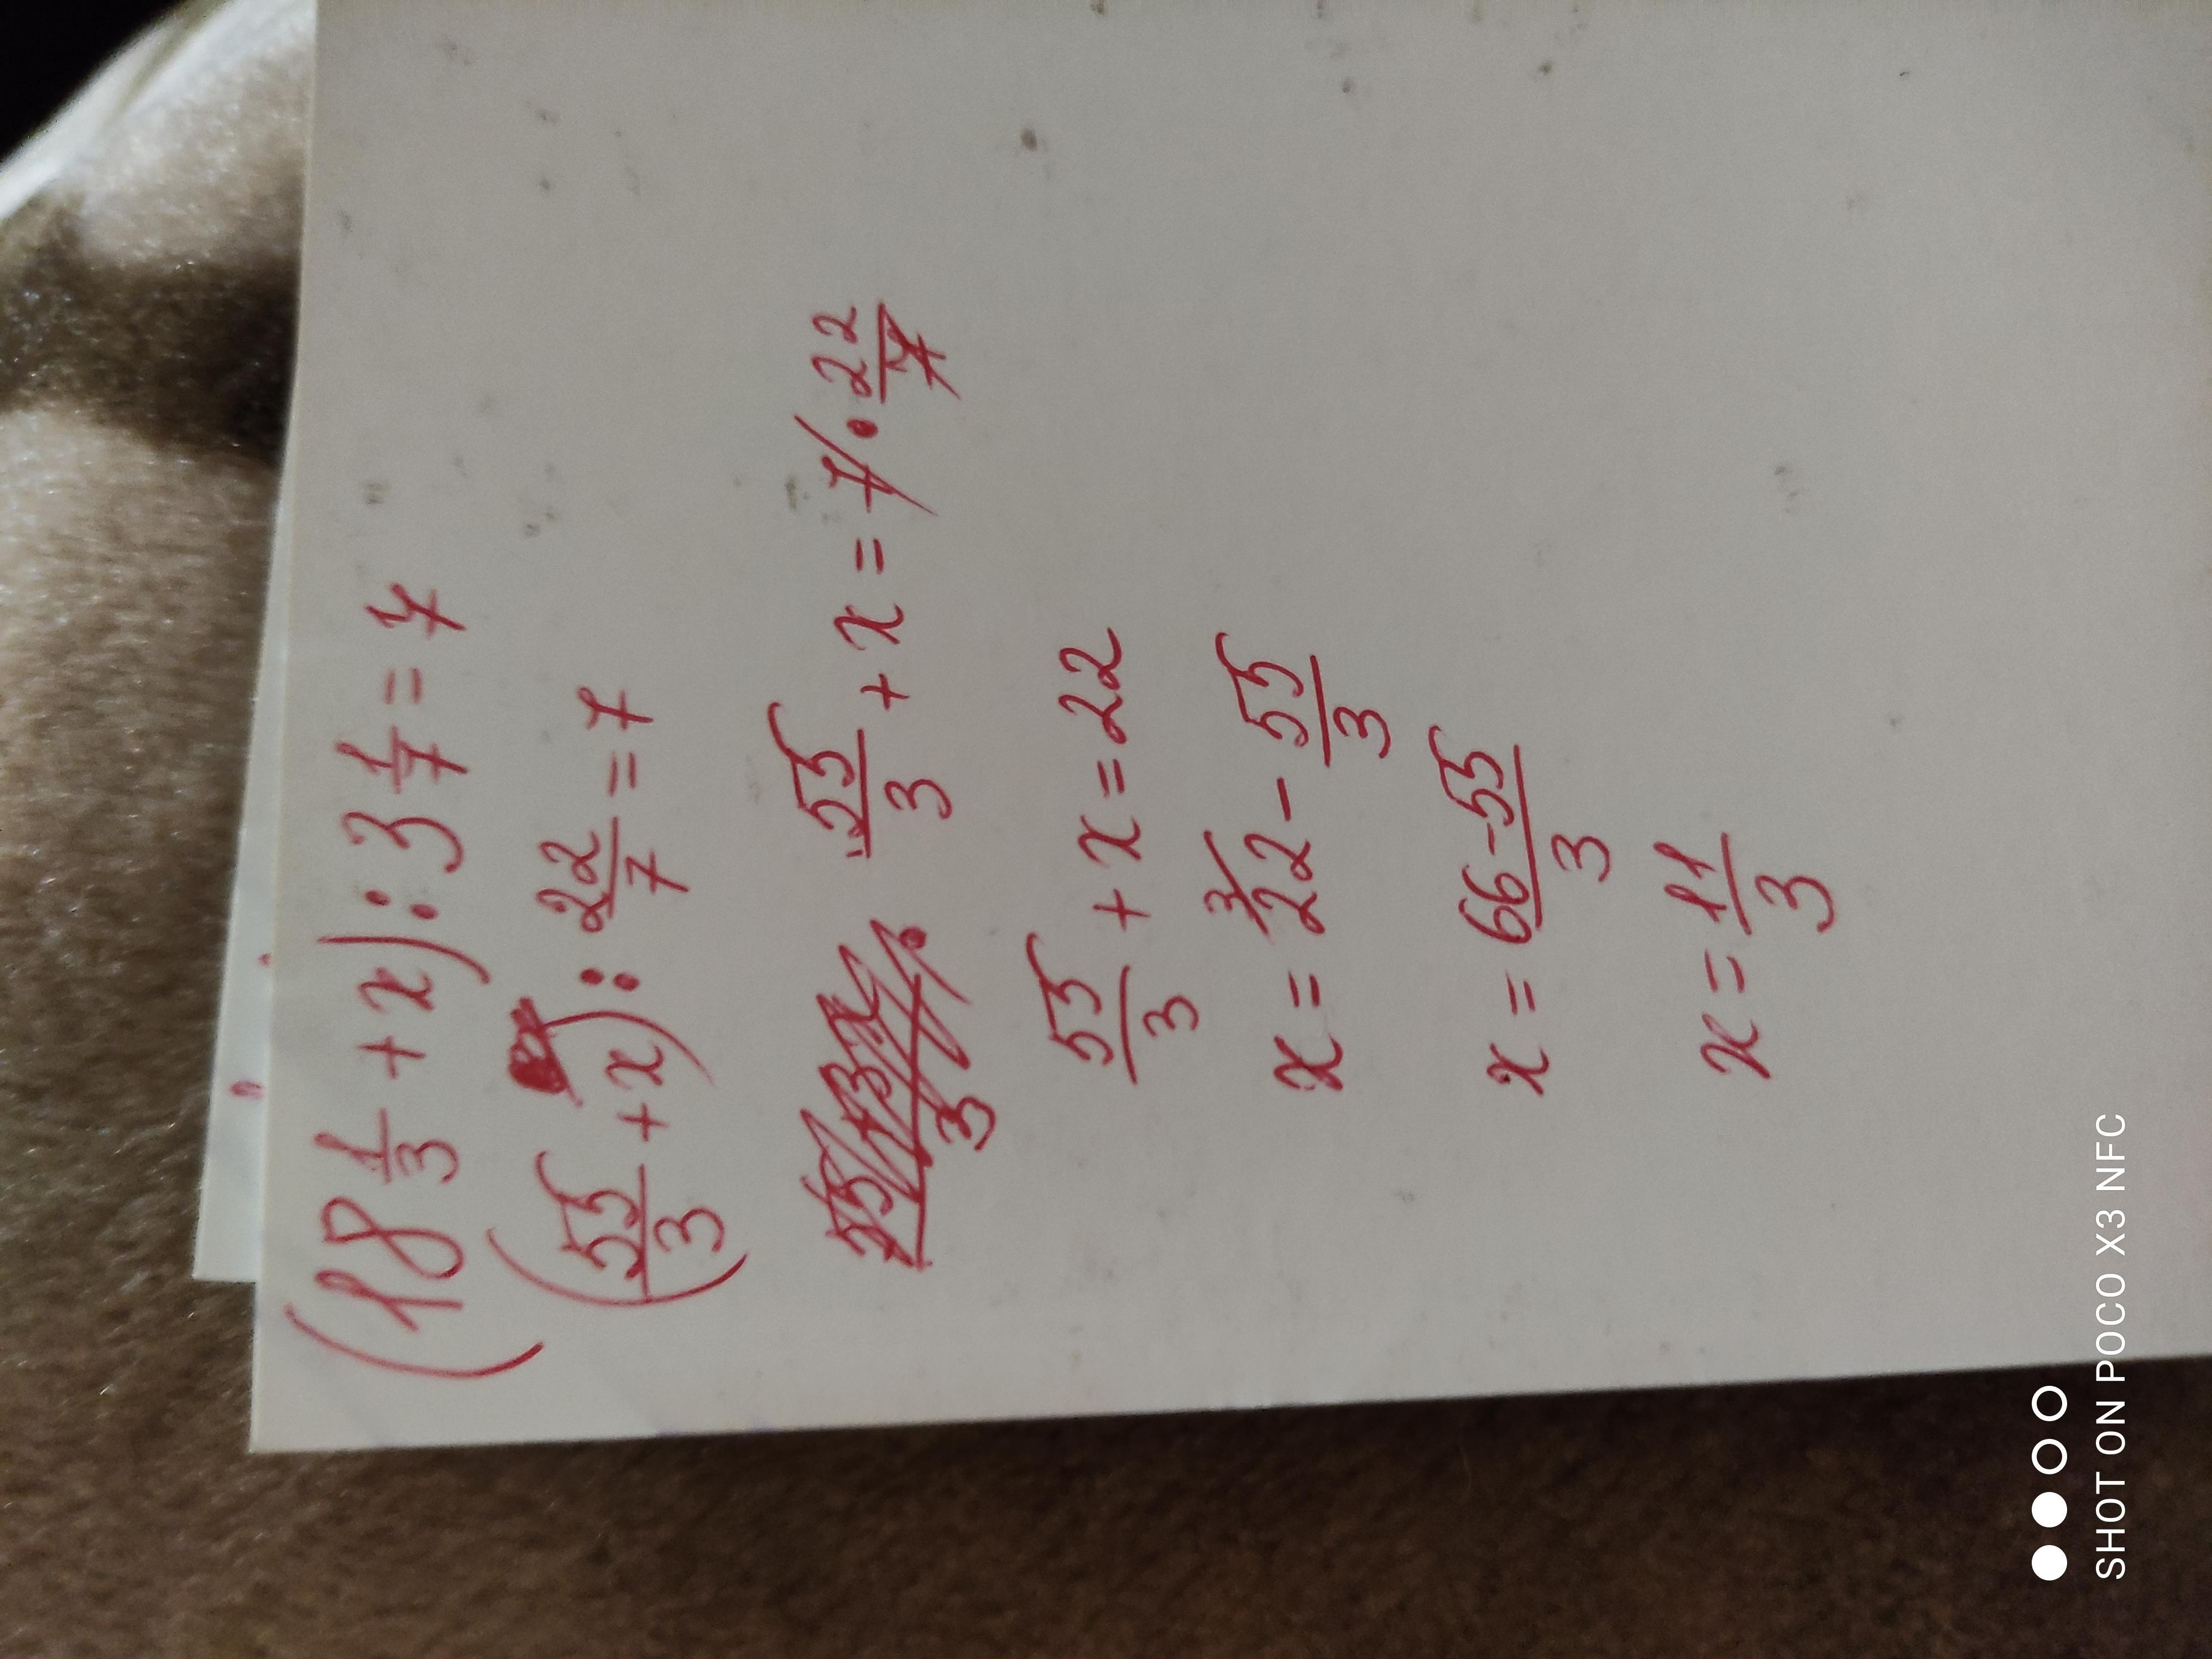 (18 1/3 + x) : 3 1/7 = 7
(55/3 + x) : 22/7 = 7
3 55/3 + x = 7 · 22/7
55/3 + x = 22
x = 3/ 22 - 55/3
x = 66-55/3
x = 11/3
SHOT ON POCO X3 NFC